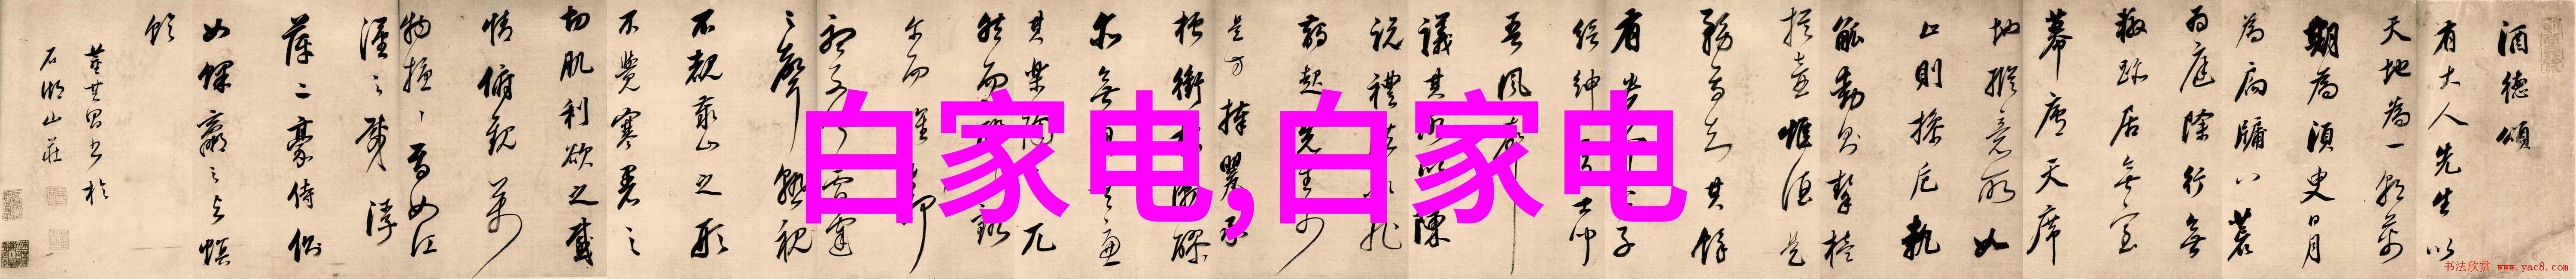 酒德頌
有大人先生以
天地為一朝萬
期為須臾日月
為扃牖八荒
為庭除行無
轍跡居無室
幕廬天席
地縱意所如
止則操卮執
觚動則挈榼
提壺惟酒是
務焉知其餘
有貴介公子
紳處士
吾風聲
議其所以陳
說禮法
起先生
是方捧甖承
槽銜杯漱醪
無思無慮
其樂陶陶兀
然而
尔而醒
雷霆
之聲熟視
不覩泰山之形
不覺寒暑之
切肌利欲之感
情俯觀萬
物擾擾焉如江
漢之載浮
萍二豪侍側
如蜾蠃之與螟
蛉
董其昌書於
石湖山莊
白家电,白家电
书法欣赏 www.yac8.com